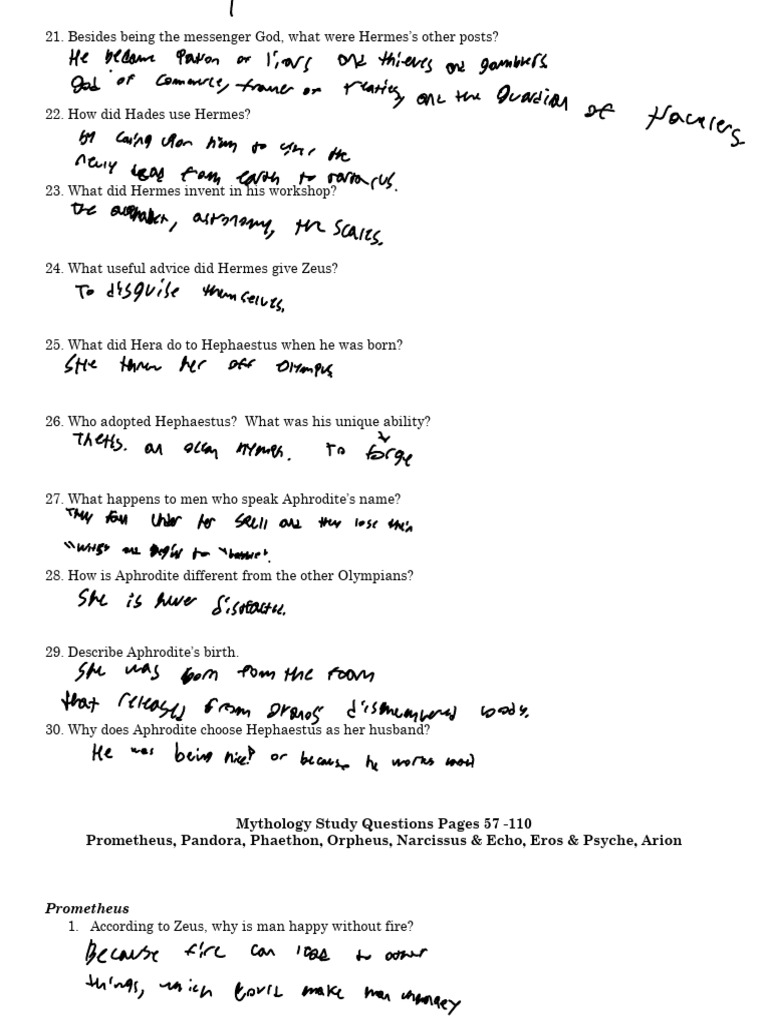 21. Besides being the messenger God, what were Hermes's other posts?
He became Patron of liars and thieves and gamblers
God of Commerce, framer of treaties, and the Guardian of travelers
22. How did Hades use Hermes?
By calling upon him to the
newly dead from earth to Tartarus.
23. What did Hermes invent in his workshop?
The alphabet, astronomy, the scales.
24. What useful advice did Hermes give Zeus?
To disguise themselves.
25. What did Hera do to Hephaestus when he was born?
She threw her off Olympus
26. Who adopted Hephaestus? What was his unique ability?
Thetis. an nymph. To forge
27. What happens to men who speak Aphrodite's name?
They fall under her spell and they lose their
"wits" and begin to
28. How is Aphrodite different from the other Olympians?
She is never
29. Describe Aphrodite's birth.
She was born from the foam
that released from dismembered body.
30. Why does Aphrodite choose Hephaestus as her husband?
He was being nice? or because he works
Mythology Study Questions Pages 57 -110
Prometheus, Pandora, Phaethon, Orpheus, Narcissus & Echo, Eros & Psyche, Arion
Prometheus
1. According to Zeus, why is man happy without fire?
Because fire can lead to other
things, which could make man unhappy